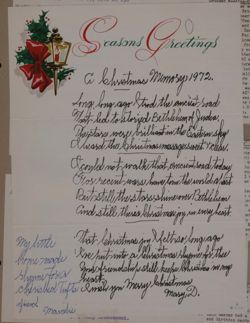 Seasons Greetings
A Christmas Memory 1972.
Long, long ago I trod the ancient road
That led to storied Bethlehem of Judea,
The stars were brilliant in the Eastern sky
I heard the Christmas message sweet & clear.
I could not walk that ancient road today
For recent wars have torn the world apart
But still the stars shine over Bethlehem
And still there's Christmas joy in every heart
That Christmas joy I felt so long ago
I've put into a Christmas rhyme for
And friendship still keeps Christmas in my heart
I wish you Merry Christmas
Mary D.
My little
home made
rhyme for a
cherished Tufts
friend